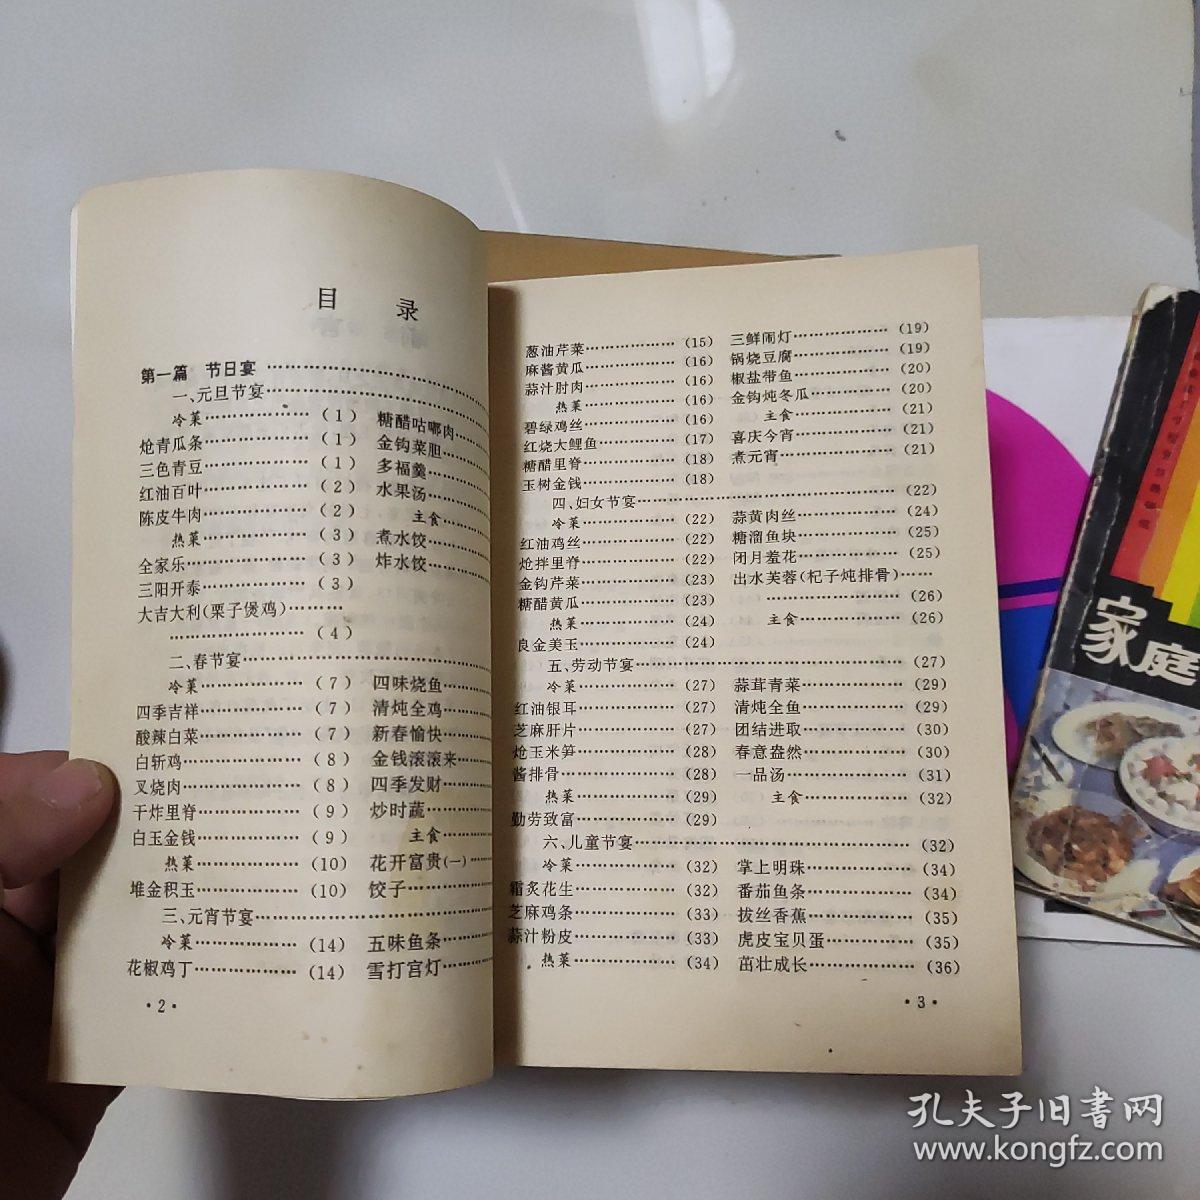 目 录
第一篇 节日宴…………
一、元旦节宴…………
冷菜…………(1)
炝青瓜条…………(1)
三色青豆…………(1)
红油百叶…………(2)
陈皮牛肉…………(2)
热菜…………(3)
全家乐…………(3)
三阳开泰…………(3)
大吉大利(栗子煲鸡)………
…………(4)
糖醋咕嘟肉
金钩菜胆…………
多福羹…………
水果汤…………
主食…………
煮水饺…………
炸水饺…………
二、春节宴…………
冷菜…………(7)
四季吉祥…………(7)
酸辣白菜…………(7)
白斩鸡…………(8)
叉烧肉…………(8)
干炸里脊…………(9)
白玉金钱…………(9)
热菜…………(10)
堆金积玉…………(10)
四味烧鱼…………
清炖全鸡…………
新春愉快…………
金钱滚滚来…………
四季发财…………
炒时蔬…………
主食…………
花开富贵(一)…………
饺子…………
三、元宵节宴…………
冷菜…………(14)
花椒鸡丁…………(14)
五味鱼条…………
雪打宫灯…………
·2·
葱油芹菜…………(15)
麻酱黄瓜…………(16)
蒜汁肘肉…………(16)
热菜…………(16)
碧绿鸡丝…………(16)
红烧大鲤鱼…………(17)
糖醋里脊…………(18)
玉树金钱…………(18)
三鲜闹灯…………(19)
锅烧豆腐…………(19)
椒盐带鱼…………(20)
金钩炖冬瓜…………(20)
主食…………(21)
喜庆今宵…………(21)
煮元宵…………(21)
四、妇女节宴…………(22)
冷菜…………(22)
红油鸡丝…………(22)
炝拌里脊…………(22)
金钩芹菜…………(23)
糖醋黄瓜…………(23)
热菜…………(24)
良金美玉…………(24)
蒜黄肉丝…………(24)
糖溜鱼块…………(25)
闭月羞花…………(25)
出水芙蓉(杞子炖排骨)……
…………(26)
主食…………(26)
五、劳动节宴…………(27)
冷菜…………(27)
红油银耳…………(27)
芝麻肝片…………(27)
炝玉米笋…………(28)
酱排骨…………(28)
热菜…………(29)
勤劳致富…………(29)
蒜茸青菜…………(29)
清炖全鱼…………(29)
团结进取…………(30)
春意盎然…………(30)
一品汤…………(31)
主食…………(32)
六、儿童节宴…………(32)
冷菜…………(32)
霜炙花生…………(32)
芝麻鸡条…………(33)
蒜汁粉皮…………(33)
热菜…………(34)
掌上明珠…………(34)
番茄鱼条…………(34)
拔丝香蕉…………(35)
虎皮宝贝蛋…………(35)
茁壮成长…………(36)
·3·
家庭
孔夫子旧书网
www.kongfz.com